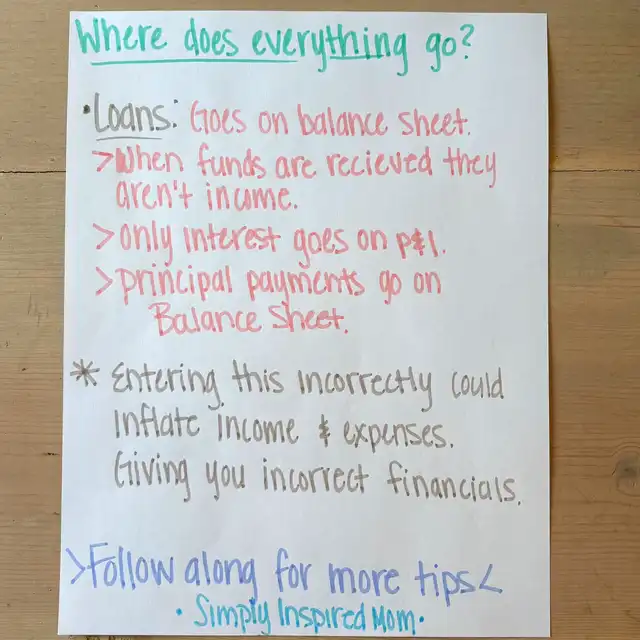 Where does everything go?
• Loans: Goes on balance sheet.
> When funds are recieved they
aren't income.
> only interest goes on p&l.
> principal payments go on
Balance Sheet.
* Entering this incorrectly could
inflate income & expenses.
Giving you incorrect financials.
>Follow along for more tips<
• Simply Inspired Mom •